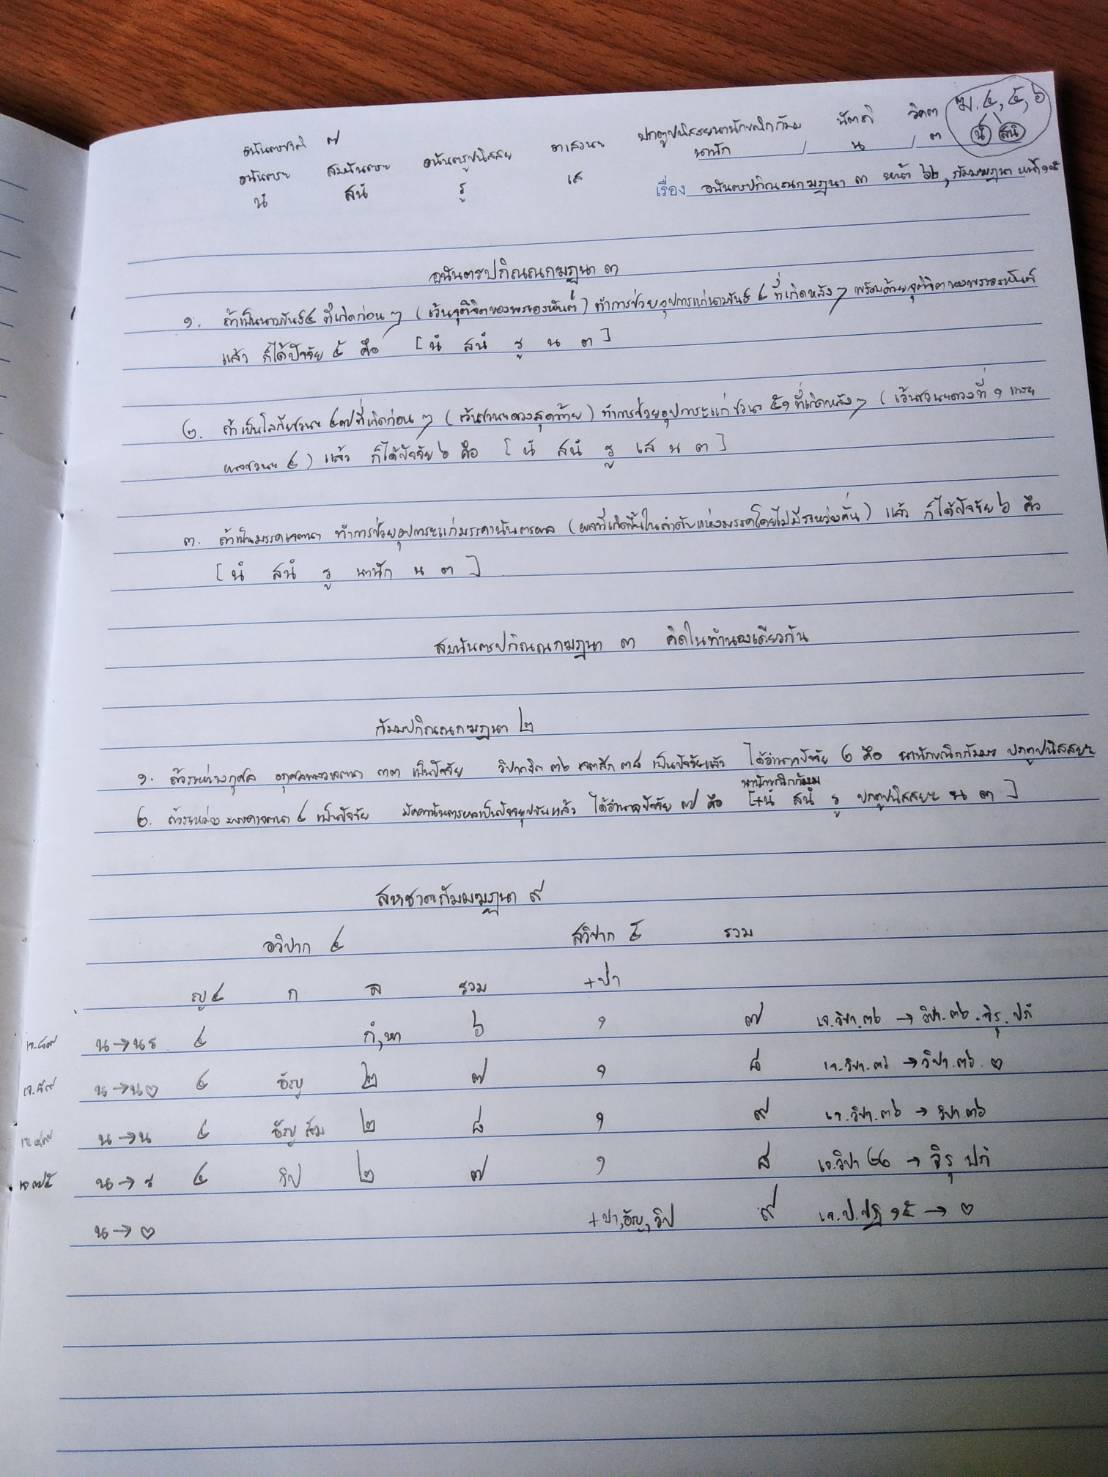 อนันตรชาติ ๗
อนันตระ สมนันตระ อนันตรูปนิสสย อาเสวนะ ปกตูปนิสสยนานักขณิกกัมม นัตถิ วิคต ฆ. ๔, ๕, ๖
นํ สนํ รู เส นานัก / น / ต นํ สนํ
เรื่อง อนันตรปกิณณกฆฏนา ๓ หน้า ๖๖, กัมมฆฏนา หน้า ๑๕
อนันตรปกิณณกฆฏนา ๓
๑. ถ้าเป็นนามขันธ์๔ ที่เกิดก่อน ๆ (เว้นจุติจิตของพระอรหันต์) ทำการช่วยอุปการะแก่นามขันธ์ ๔ ที่เกิดหลัง ๆ พร้อมด้วยจุติจิตของพระอรหันต์
แล้ว ก็ได้ปัจจัย ๕ คือ [ นํ สนํ รู น ต ]
๒. ถ้าเป็นโลกียชวนะ ๔๗ ที่เกิดก่อน ๆ (เว้นชวนะดวงสุดท้าย) ทำการช่วยอุปการะแก่ ชวนะ ๕๑ ที่เกิดหลัง ๆ (เว้นชวนะดวงที่ ๑ และ
ผลชวนะ ๔) แล้ว ก็ได้ปัจจัย ๖ คือ [ นํ สนํ รู เส น ต ]
๓. ถ้าเป็นมรรคเจตนา ทำการช่วยอุปการะแก่มรรคานันตรผล (ผลที่เกิดขึ้นในลำดับแห่งมรรคโดยไม่มีระหว่างคั่น) แล้ว ก็ได้ปัจจัย ๖ คือ
[ นํ สนํ รู นานัก น ต ]
สมนันตรปกิณณกฆฏนา ๓ คิดในทำนองเดียวกัน
กัมมปกิณณกฆฏนา ๒
๑. ถ้าระหว่างกุศล อกุศลเจตนา ๓๓ เป็นปัจจัย วิปากจิต ๓๖ เจตสิก ๓๘ เป็นปัจจัยแล้ว ได้อำนาจปัจจัย ๒ คือ นานักขณิกกัมม ปกตูปนิสสยะ
๒. ถ้าระหว่าง มรรคเจตนา ๔ เป็นปัจจัย มัคคานันตรผลเป็นปัจจยุปบันแล้ว ได้อำนาจปัจจัย ๗ คือ [นานักขณิกกัมม + นํ สนํ รู ปกตูปนิสสยะ น ต ]
สหชาตกัมมฆฏนา ๙
อวิปาก ๔ สวิปาก ๕ รวม
ญ ๔ ก ล รวม +ปา
น → นร ๔ กํ, หา ๖ ๑ ๗ เจ.วิปา.๓๖ → วิปา.๓๖. จิรุ. ปกํ
น → น๐ ๔ อัญ ๒ ๗ ๑ ๘ เจ.วิปา.๓๖ → วิปา.๓๖. ๐
น → น ๔ อัญ สัม ๒ ๘ ๑ ๙ เจ.วิปา.๓๖ → วิปา ๓๖
น → ร ๔ วิป ๒ ๗ ๑ ๘ → จิรุ ปกํ
น → ๐ +ปา, อัญ, วิป ๙ เจ.ป.ปฏิ ๑๕ → ๐